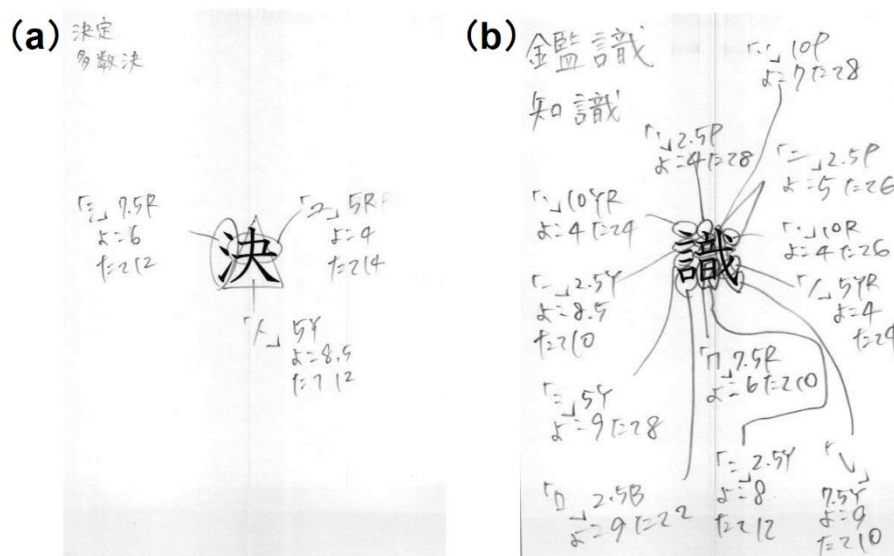 (a)
決定
多数決
「氵」7.5R
よこ6
たて12
「ユ」5R
よこ4
たて14
決
「人」5Y
よこ8.5
たて12
(b)
鑑識
知識
「ヽヽ」10P
よこ7たて8
「ソ」2.5P
よこ4たて8
「一」2.5P
よこ5たて6
「ヽ」10YR
よこ4たて4
「ヽ」10R
よこ4たて6
識
「二」2.5Y
よこ8.5
たて10
「ノ」5YR
よこ4
たて4
「二」5Y
よこ9たて8
「冂」7.5R
よこ6たて10
「口」2.5B
よこ9たて2
「二」2.5Y
よこ8
たて12
「㇂」
7.5Y
よこ9
たて10